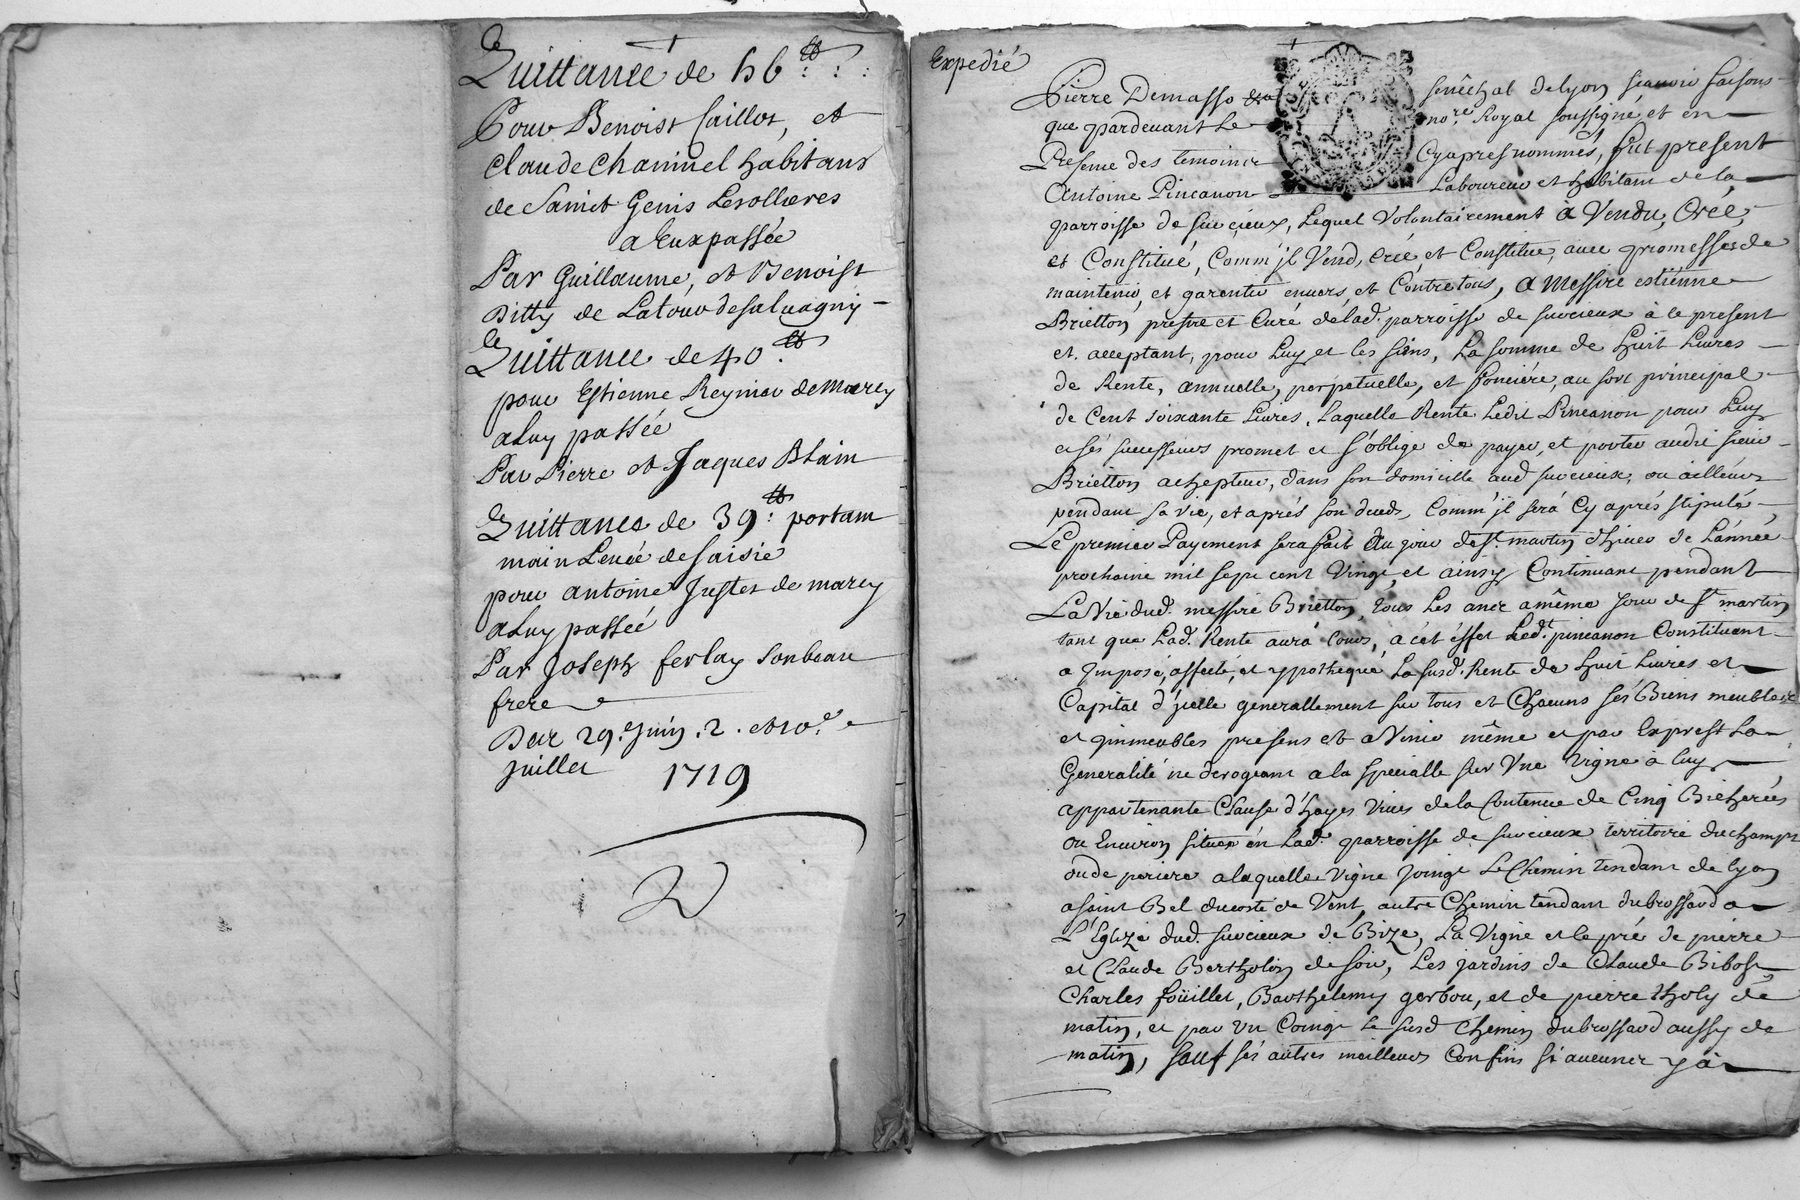 Quittance de 56 ₶
Pour Benoist Caillot, et
Claude Chaminel habitans
de Sainct Genis Lesollieres
a Eux passée
Par Guillaume, et Benoist
Ditty de Latour de salvagny
Quittance de 40 ₶
pour Estienne Reynier de Marcy
a Luy passée
Par Pierre et Jaques Blain
Quittance de 39 ₶ portant
main Leveé de saisie
pour antoine Juster de marcy
a Luy passeé
Par Joseph ferlay son beau
frere
Des 29e Juin, 2. et 10.e
Juillet 1719
Expedié
Pierre Demasso senêchal de Lyon scavoir faisons
que pardevant Le no.re Royal soussigné et en
Presence des temoins Cy apres nommés, fut present
Antoine Pincanon Laboureur et habitant de la
parroisse de Sucieux, Lequel Volontairement à Vendu, Creé,
et Constitué, Comm'jl Vend, Creé, et Constitue, avec promesses de
maintenir, et garentir envers, et Contre tous, a Messire estienne
Brietton prestre et Curé de lad. parroisse de sucieux à ce present
et acceptant, pour Luy et les siens, La somme de huit Livres
de Rente, annuelle, perpetuelle, et fonciére, au sort principal
de Cent soixante Livres, Laquelle Rente Ledit Pincanon pour Luy
et sés successeurs promet et s'oblige de payer, et porter audit sieur
Brietton achepteur, dans son domicille aud. sucieux, ou ailleurs
pendant sa vie, et aprés son deceds, Comm'jl sera Cy aprés stipulé,
Le premier Payement sera fait Au jour de St. martin d'hiver de L'année
prochaine mil sept cent Vingt, et ainsy Continuant pendant
La Vie dud. messire Brietton, tous Les ans a même jour de St. martin
tant que Lad. Rente aura Cours, a cét éffet Led.t pincanon Constituant
a Jmposé, affecté, et ypothequé La susd. Rente de huit Livres et
Capital d'jcelle generallement sur tous et Chacuns sés Biens meubles
et jmmeubles presens et a Venir même et par Exprest La
Generalité ne derogeant a la specialle sur Vne Vigne a luy
appartenante Clause d'hayes vives de la Contenue de Cinq Bicherées
ou Environ située én Lad. parroisse de sucieux territoire du champt
ou de periere a laquelle Vigne joingt Le Chemin tendant de Lyon
a saint Bel du costé de Vent, autre Chemin tendant du brossard a
L'Eglize dud. sucieux de Bize, La Vigne et le pré de pierre
et Claude Bertholon de soir, Les jardins de Claude Bibost
Charles foüillet, Barthelemy gerbou, et de pierre tholy de
matin, et par vn Coingt Le susd. Chemin du brossard aussy de
matin, sauf sés autres meilleurs Confins si aucuns y à